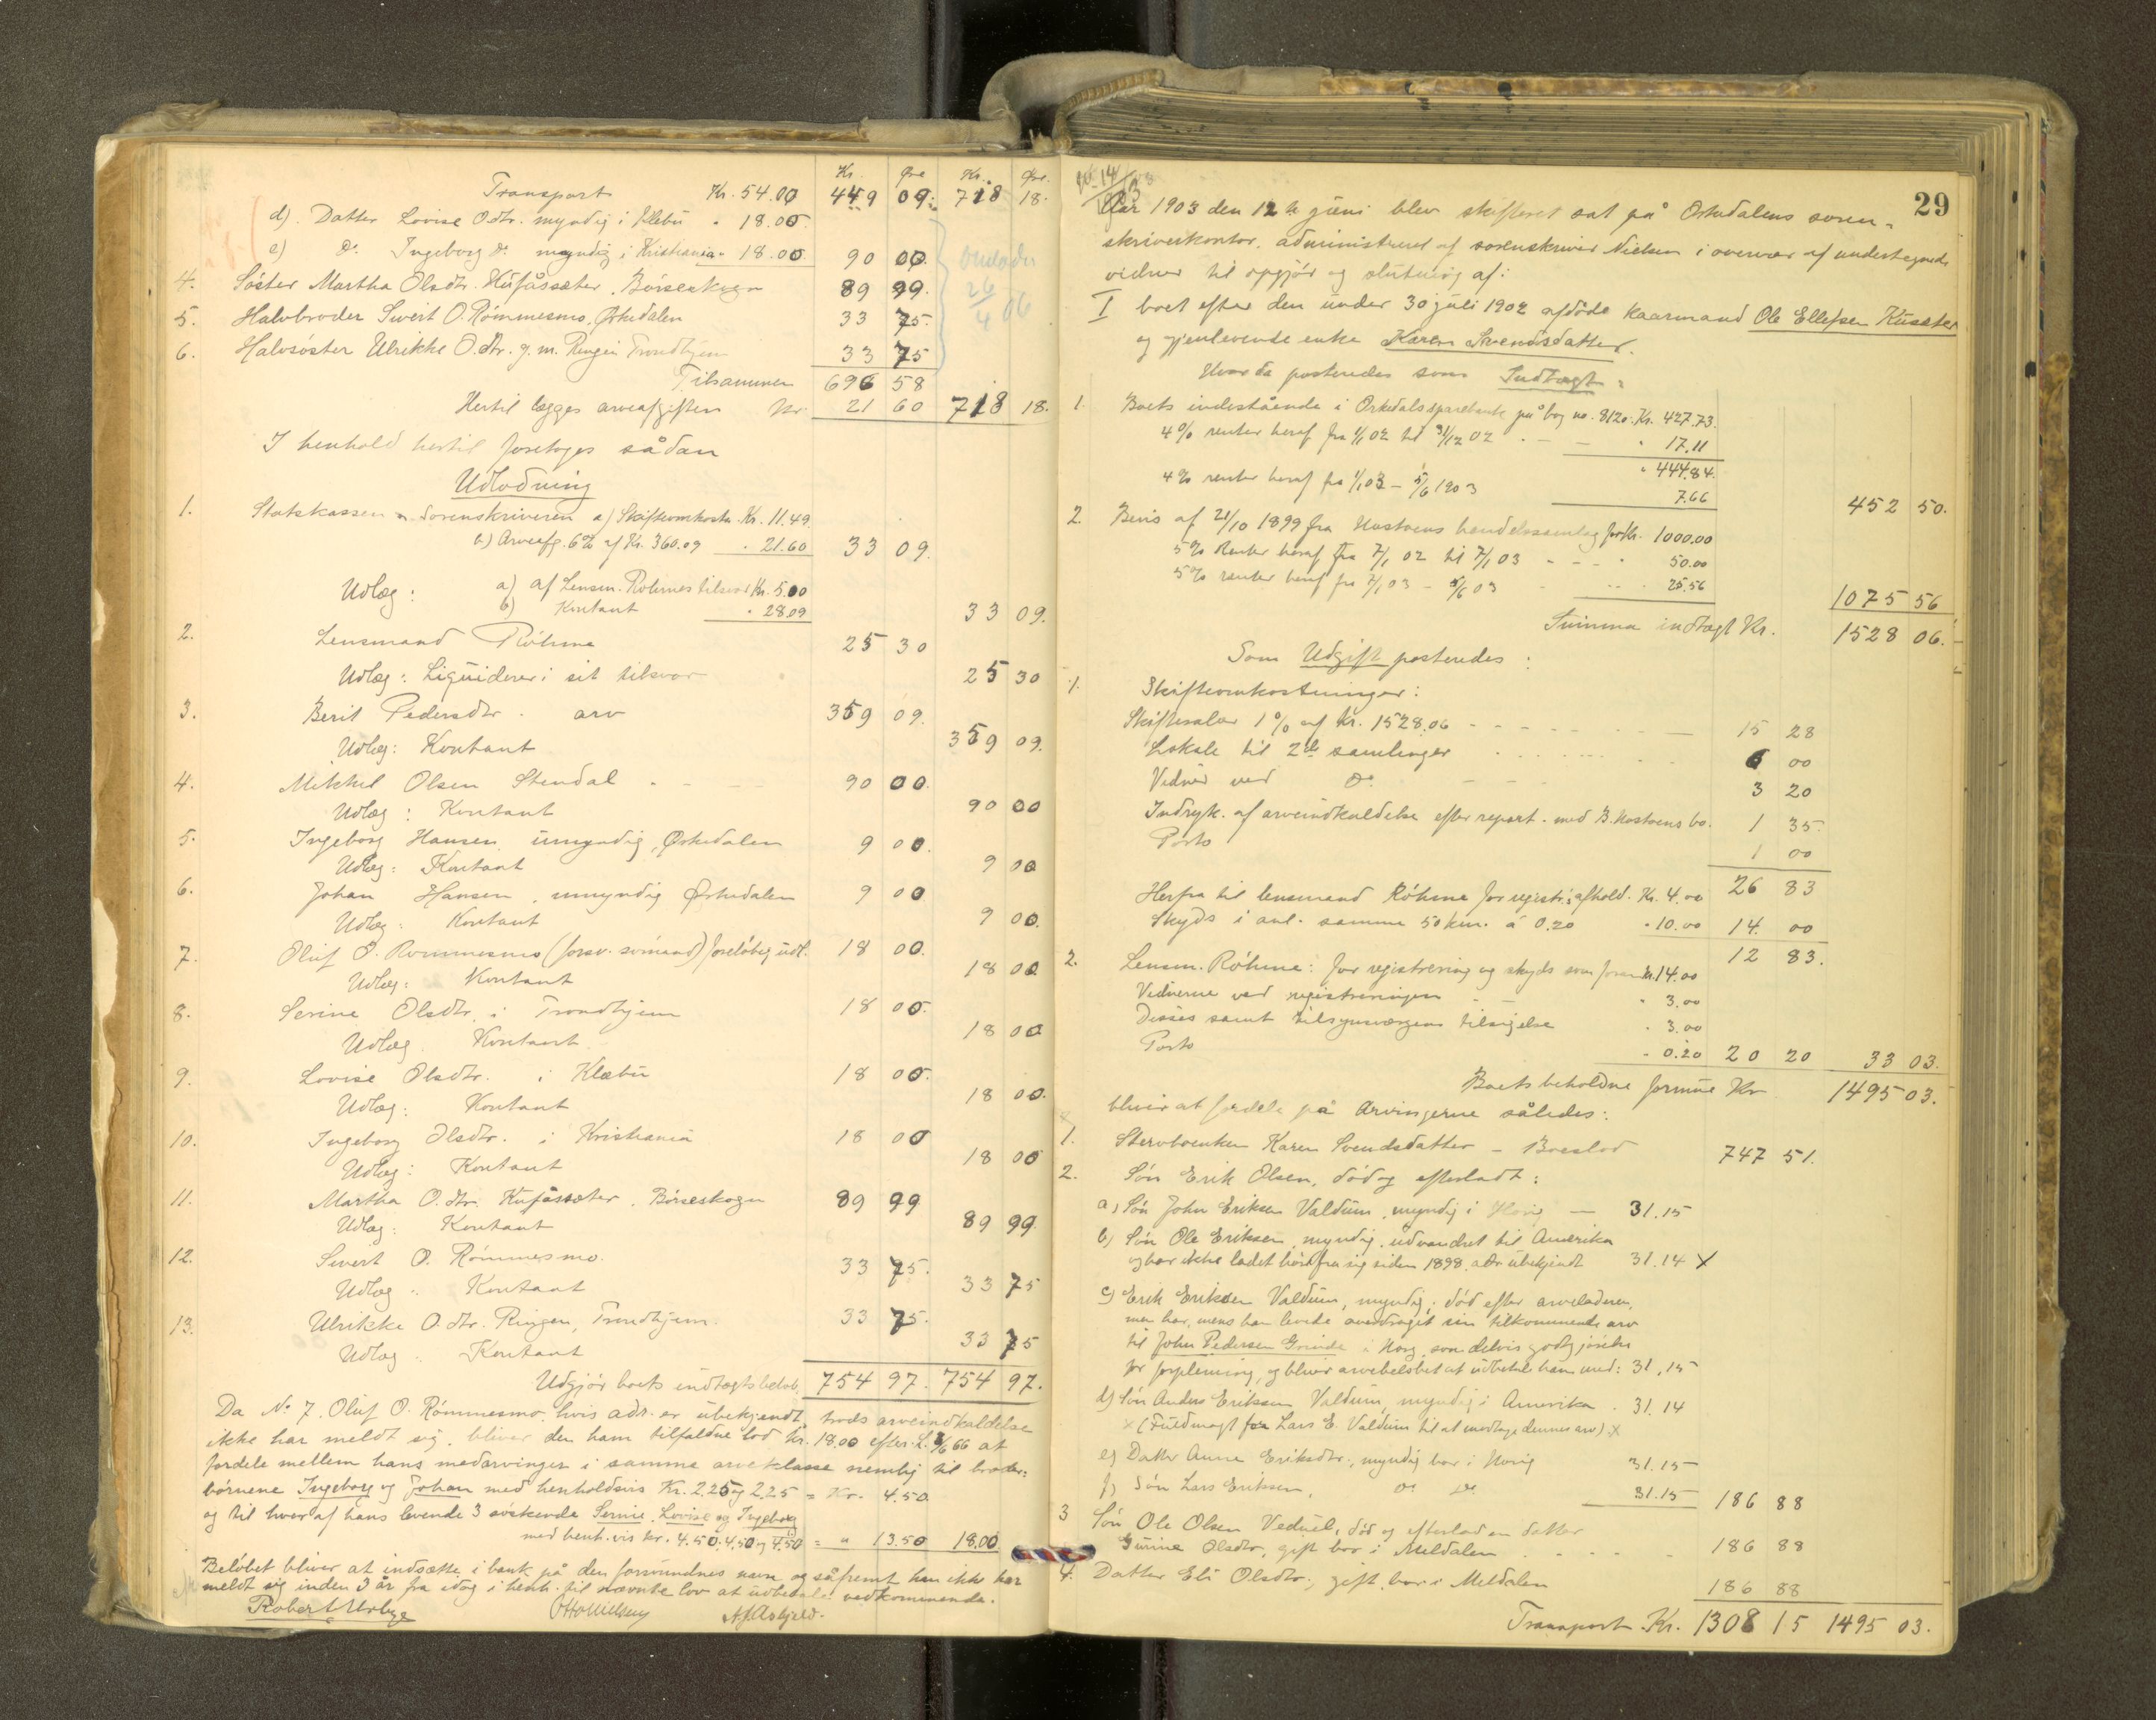 Kr. Øre Kr. Øre.
Transport Kr. 54.00 449 09. 718 18.
d). Datter Lovise O.dtr. myndig i Klebu " 18.00
e) Do. Ingeborg Do. myndig i Kristiania " 18.00 90 00.
4. Søster Martha Olsdtr. Kufåssæter, Børseskogn 89 99.
5. Halvbroder Sivert O. Rømmesmo, Ørkedalen 33 75.
6. Halvsøster Ulrikke O.dtr. g.m. Ringen Trondhjem 33 75
26/4 06
Tilsammen 696 58
Hertil lægges arveafgiften Kr. 21 60 718 18.
I henhold hertil foretages sådan
Udlodning
1. Statskassen v. Sorenskriveren a) Skifteomkostn. Kr. 11.49.
b) Arveafg. 6% af Kr. 360.09 " 21.60 33 09.
Udlæg: a) af Lensm. Røhmes tilsvar Kr. 5.00
b) Kontant " 28.09 33 09.
2. Lensmand Røhme 25 30
Udlæg: Liquiderer i sit tilsvar 25 30
3. Berit Pedersdtr. arv 359 09.
Udlæg: Kontant 359 09.
4. Mikkel Olsen Stendal 90 00.
Udlæg: Kontant 90 00
5. Ingeborg Hansen, umyndig, Ørkedalen 9 00.
Udlæg: Kontant 9 00
6. Johan Hansen, umyndig Ørkedalen 9 00
Udlæg: Kontant 9 00.
7. Oluf O. Rømmesmo (forsv. sømand) foreløbig udl. 18 00.
Udlæg: Kontant 18 00
8. Serine Olsdtr. i Trondhjem 18 00.
Udlæg. Kontant 18 00
9. Lovise Olsdtr. i Klæbu 18 00.
Udlæg: Kontant 18 00.
10. Ingeborg Olsdtr. i Kristiania 18 00
Udlæg: Kontant 18 00
11. Martha O.dtr. Kufåssæter, Børseskogn 89 99
Udlæg: Kontant 89 99.
12. Sivert O. Rømmesmo. 33 75.
Udlæg: Kontant 33 75
13. Ulrikke O.dtr. Ringen, Trondhjem. 33 75.
Udlæg: Kontant 33 75
Udgjør boets indtægtsbeløb. 754 97. 754 97.
Da No 7, Oluf O. Rømmesmo, hvis adr. er ubekjendt, trods arveindkaldelse
ikke har meldt sig, bliver den ham tilfaldne lod kr. 18.00 efter L. 66 at
fordele mellem hans medarvinger i samme arveklasse nemlig til broder-
børnene Ingeborg og Johan med henholdsvis Kr. 2.25 og 2.25 = Kr. 4.50
og til hver af hans levende 3 søskende Serine, Lovise og Ingeborg
med henh.vis kr. 4.50, 4.50 og 4.50 = " 13.50 18.00
Beløbet bliver at indsætte i bank på den forsvundnes navn og såfremt han ikke har
meldt sig inden 3 år fra idag i henh. til nævnte lov at udbetale vedkommende.
29
Aar 1903 den 12te juni blev skifteret sat på Orkedalens soren-
skriverkontor, administreret af sorenskriver Nielsen i overvær af undertegnede
vidner til opgjør og slutning af:
I boet efter den under 30 juli 1902 afdøde kaarmand Ole Ellefsen Kusæter
og gjenlevende enke Karen Svendsdatter.
Hvorda posteredes som Indtægt:
1. Boets indestående i Orkedals sparebank på bog no. 8120. Kr. 427.73.
4% renter heraf fra 1/1 02 til 31/12 02 " 17.11
" 444.84.
4% renter heraf fra 1/1 03 - 5/6 1903 7.66 452 50.
2. Bevis af 21/10 1899 fra Hostoens handelssamlag for Kr. 1000.00
5% Renter heraf, fra 7/1 02 til 7/1 03 " 50.00
5% renter heraf fra 7/1 03 - 5/6 03 " 25.56 1075 56
Summa indtægt Kr. 1528 06.
Som Udgift posteredes:
1. Skifteomkostninger:
Skiftesalær 1% af Kr. 1528.06 15 28
Lokale til 2de samlinger 6 00
Vidner ved Do. 3 20
Indryk. af arveindkaldelse efter repart. med B. Hostoens bo. 1 35
Porto 1 00
26 83
Herfra til lensmand Røhme for registr.s afhold. Kr. 4.00
Skyds i anl. samme 50 km. á 0.20 " 10.00 14 00
12 83.
2. Lensm. Røhme: for registrering og skyds som foran Kr. 14.00
Vidnerne ved registreringen " 3.00
Disses samt tilsynsværgens tilsigelse " 3.00
Porto " 0.20 20 20 33 03.
Boets beholdne formue Kr 1495 03.
bliver at fordele på Arvingerne således:
1. Stervboenken Karen Svendsdatter - Boeslod 747 51.
2. Søn Erik Olsen, død og efterladt:
a) Søn John Eriksen Valdum, myndig i Horig — 31.15
b) Søn Ole Eriksen, myndig, udvandret til Amerika
og har ikke ladet høre fra sig siden 1898. adr. ubekjendt 31.14 X
c) Erik Eriksen Valdum, myndig; død efter arveladeren,
men har, mens han levede overdraget sin tilkommende arv
til John Pedersen Grinde i Horg, som delvis godtgjørelse
for forplejning, og bliver arvebeløbet at udbetale ham med: 31.15
d) Søn Anders Eriksen Valdum, myndig i Amerika. 31.14
X (Fuldmagt for Lars E. Valdum til at modtage dennes arv) X
e) Datter Anne Eriksdtr., myndig bor i Horig 31.15
f) Søn Lars Eriksen, Do Do 31.15 186 88
3 Søn Ole Olsen Veduel, død og efterlad en datter
Gurine Olsdtr, gift bor i Meldalen 186 88
4. Datter Eli Olsdtr., gift, bor i Meldalen 186 88
Transport Kr. 1308 15 1495 03.